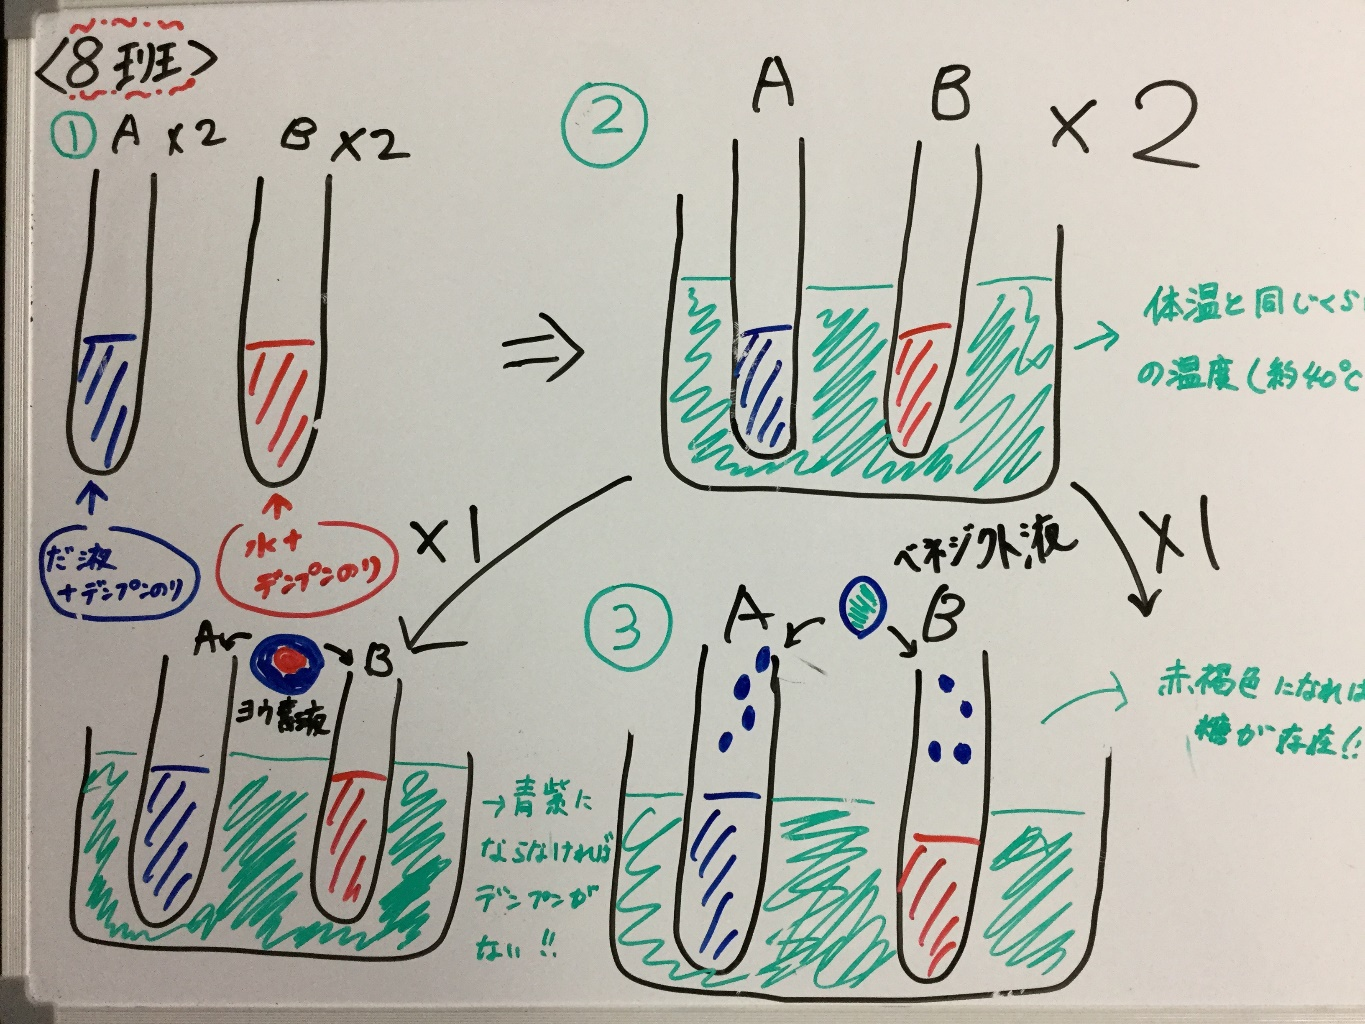 〈8班〉
① A ×2 B ×2
だ液
+デンプンのり
水+
デンプンのり
② A B ×2
→ 体温と同じくら
の温度(約40℃
×1
×1
A B
ヨウ素液
→青紫に
ならなければ
デンプンが
ない!!
ベネジクト液
③ A B
赤褐色になれば
糖が存在!!